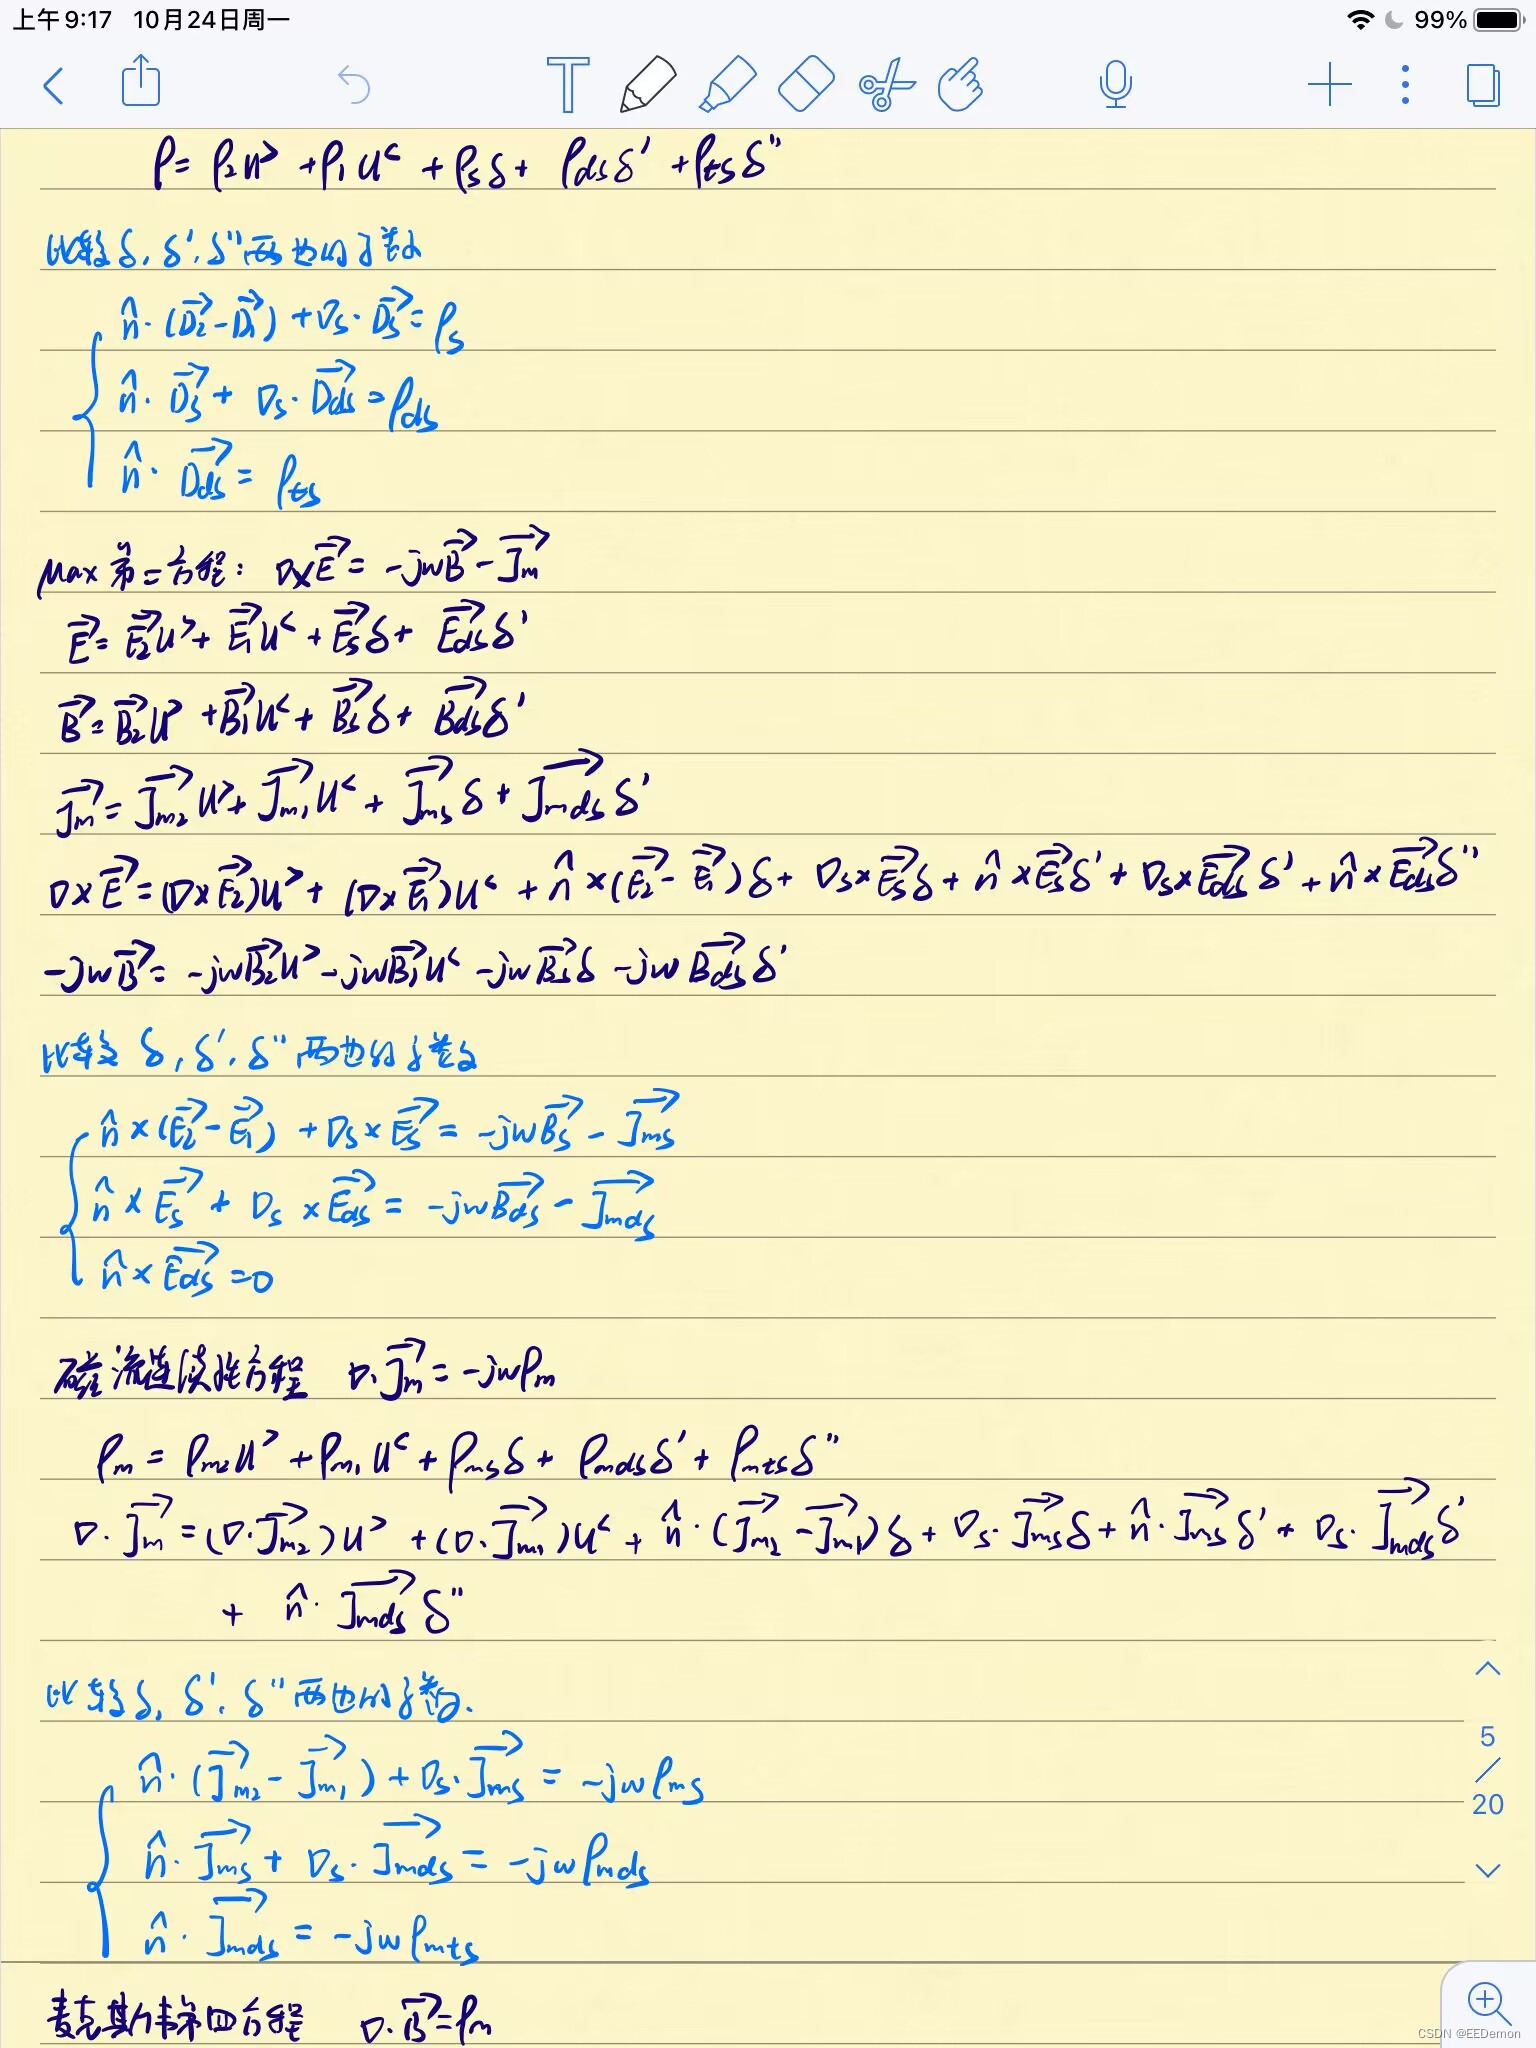 上午9:17 10月24日周一
99%
ρ= ρ₂u^> +ρ₁u^< +ρsδ+ ρdsδ' +ρtsδ''
比较δ, δ', δ''两边的系数
n̂·(D₂⃗-D₁⃗)+∇s·Ds⃗=ρs
n̂·Ds⃗+ ∇s·Dds⃗=ρds
n̂·Dds⃗= ρts
Max第二方程: ∇×E⃗= -jwB⃗-Jm⃗
E⃗=E₂⃗u^>+E₁⃗u^<+Es⃗δ+Eds⃗δ'
B⃗=B₂⃗u^>+B₁⃗u^<+Bs⃗δ+Bds⃗δ'
Jm⃗=Jm₂⃗u^>+Jm₁⃗u^<+Jms⃗δ+Jmds⃗δ'
∇×E⃗=(∇×E₂⃗)u^>+(∇×E₁⃗)u^<+n̂×(E₂⃗-E₁⃗)δ+∇s×Es⃗δ+n̂×Es⃗δ'+∇s×Eds⃗δ'+n̂×Eds⃗δ''
-jwB⃗=-jwB₂⃗u^>-jwB₁⃗u^<-jwBs⃗δ-jwBds⃗δ'
比较δ, δ', δ''两边的系数
n̂×(E₂⃗-E₁⃗)+∇s×Es⃗=-jwBs⃗-Jms⃗
n̂×Es⃗+∇s×Eds⃗=-jwBds⃗-Jmds⃗
n̂×Eds⃗=0
磁流连续性方程 ∇·Jm⃗=-jwρm
ρm=ρm₂u^>+ρm₁u^<+ρmsδ+ρmdsδ'+ρmtsδ''
∇·Jm⃗=(∇·Jm₂⃗)u^>+(∇·Jm₁⃗)u^<+n̂·(Jm₂⃗-Jm₁⃗)δ+∇s·Jms⃗δ+n̂·Jms⃗δ'+∇s·Jmds⃗δ'
+ n̂·Jmds⃗δ''
比较δ, δ', δ''两边的系数.
n̂·(Jm₂⃗-Jm₁⃗)+∇s·Jms⃗=-jwρms
n̂·Jms⃗+∇s·Jmds⃗=-jwρmds
n̂·Jmds⃗=-jwρmts
麦克斯韦第四方程 ∇·B⃗=ρm
5
/
20
CSDN @EEDemon